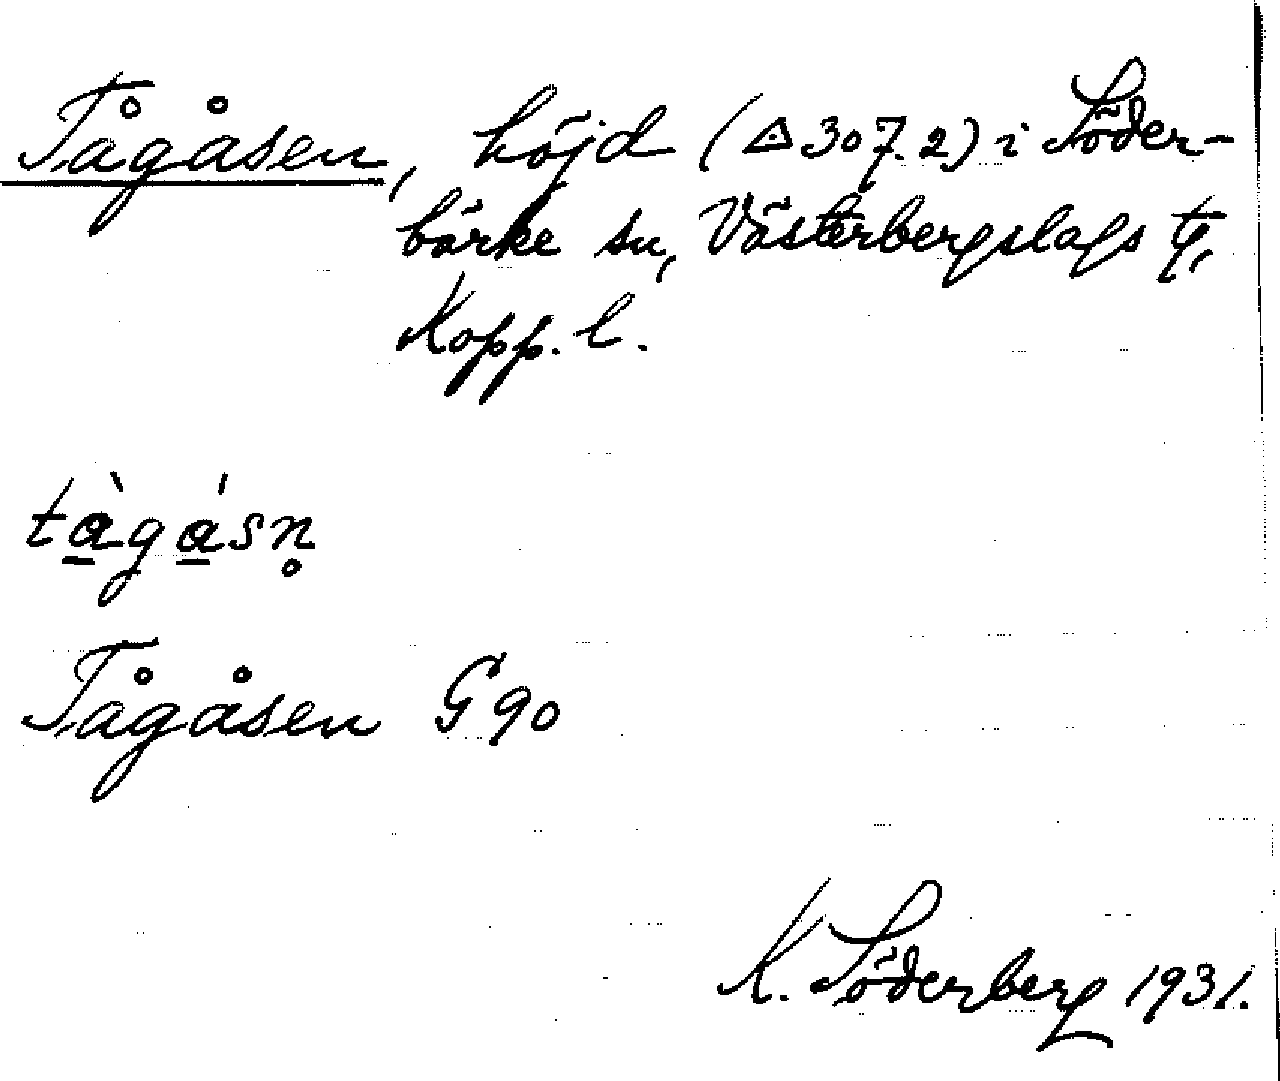 Tågåsen, höjd (△307.2) i Söder-
bärke sn, Västerbergslags tg,
Kopp. l.
tà̲gá̲sn̥
Tågåsen G90
K. Söderberg 1931.